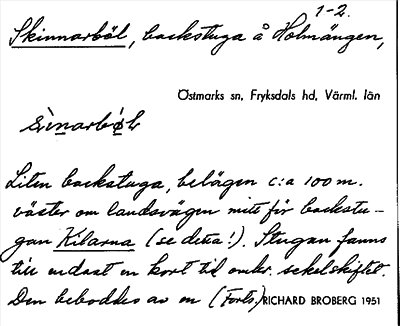 1-2.
Skinnarböl, backstuga å Holmängen,
Östmarks sn, Fryksdals hd, Värml. län
Liten backstuga, belägen c:a 100 m.
väster om landsvägen mitt för backstu-
gan Kilarna (se detta!). Stugan fanns
till endast en kort tid omkr. sekelskiftet.
Den beboddes av en (Forts.) RICHARD BROBERG 1951